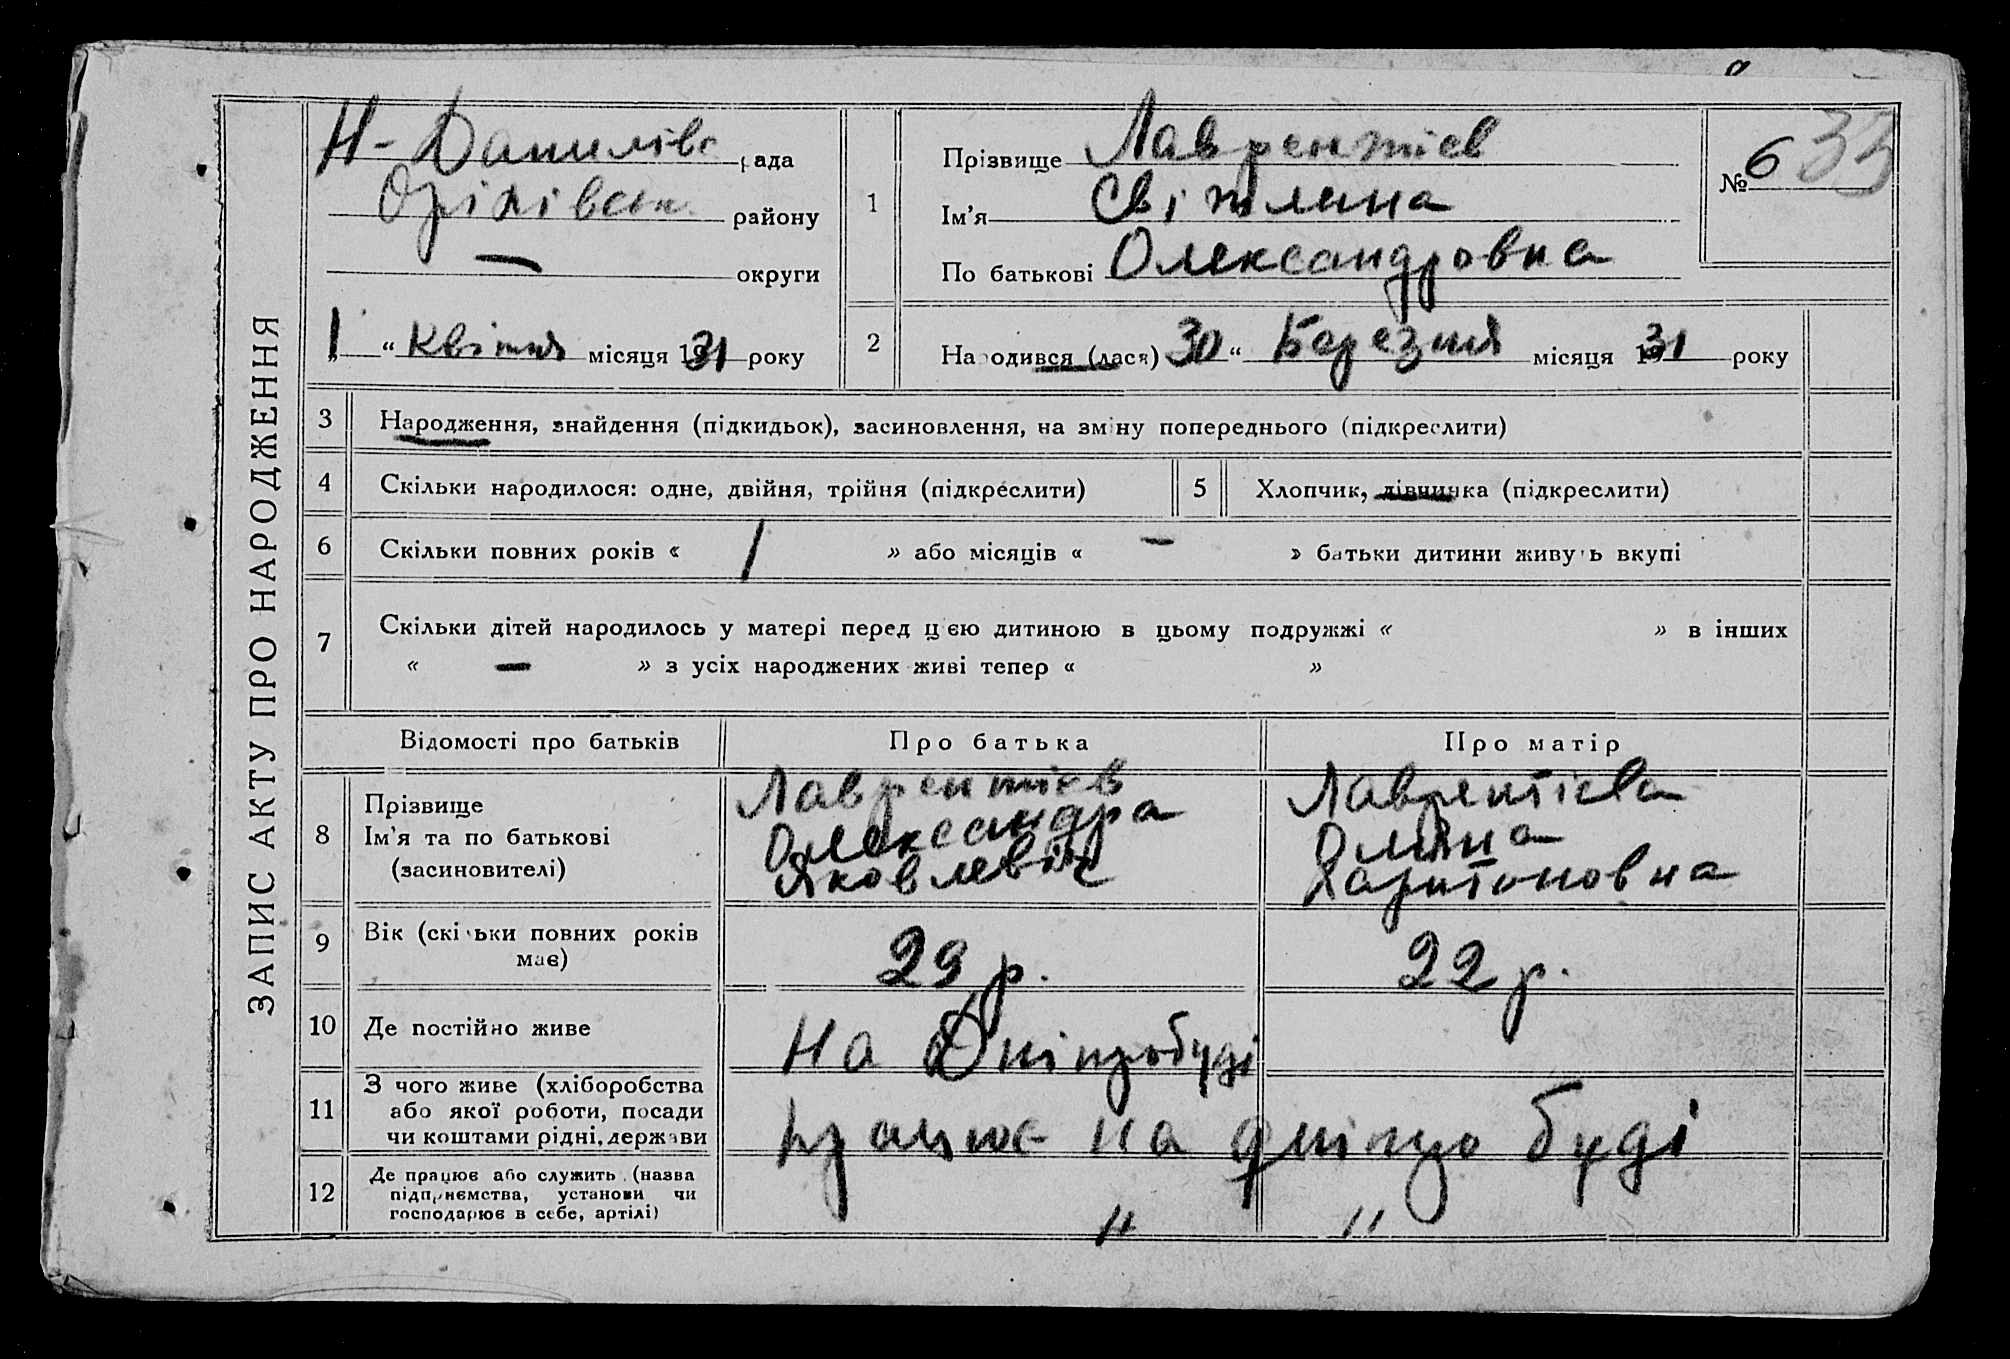 ЗАПИС АКТУ ПРО НАРОДЖЕННЯ
Н-Данилівс рада
Оріхівськ. району
— округи
„1“ Квітня місяця 1931 року
1
Прізвище Лаврентієв
Ім'я Світлана
По батькові Олександровна
№ 6 35
2
Народився (лася) 30 “ Березня місяця 1931 року
3 Народження, знайдення (підкидьок), засиновлення, на зміну попереднього (підкреслити)
4 Скільки народилося: одне, двійня, трійня (підкреслити)
5 Хлопчик, дівчинка (підкреслити)
6 Скільки повних років « 1 » або місяців « — » батьки дитини живуть вкупі
7 Скільки дітей народилось у матері перед цією дитиною в цьому подружжі « » в інших
« — » з усіх народжених живі тепер « »
Відомості про батьків Про батька Про матір
8 Прізвище
Ім'я та по батькові
(засиновителі)
Лаврентієв
Олександра
Яковлевіч
Лаврентієва
Оляна
Харитоновна
9 Вік (скільки повних років
має)
29 р.
22 р.
10 Де постійно живе
на Дніпробуді
11 З чого живе (хліборобства
або якої роботи, посади
чи коштами рідні, держави
працює на дніпро буді
12 Де працює або служить (назва
підприємства, установи чи
господарює в себе, артілі)
" "